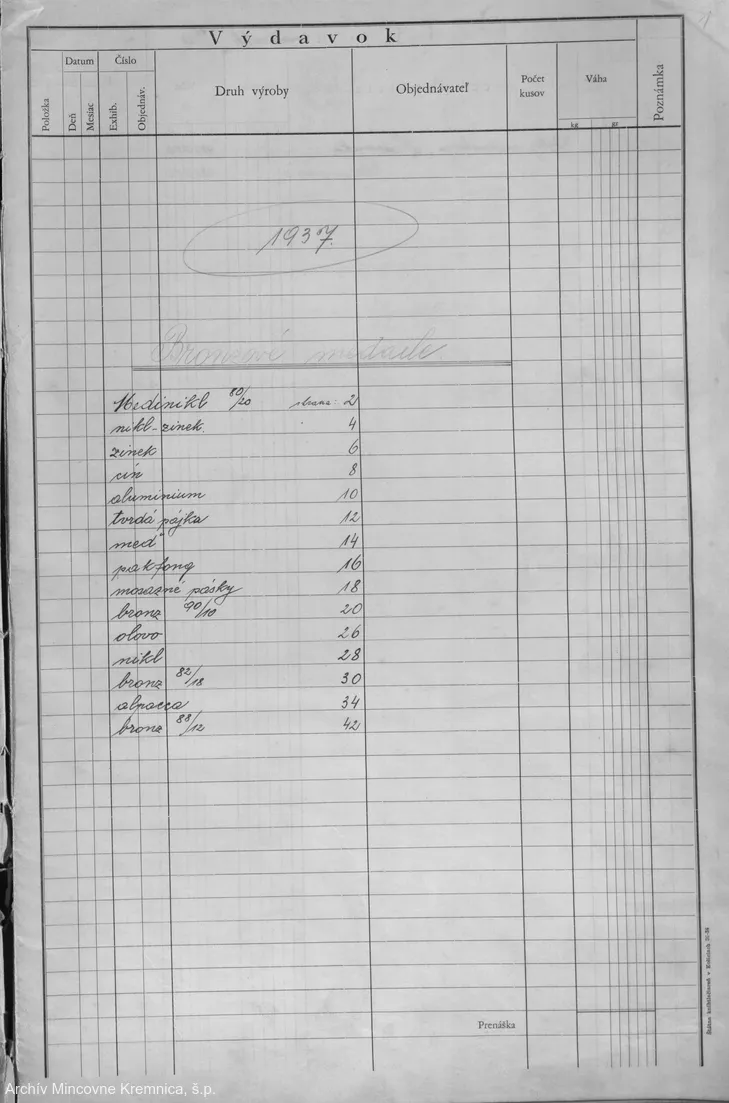 1
Výdavok
Položka
Datum
Deň
Mesiac
Číslo
Exhib.
Objednáv.
Druh výroby
Objednávateľ
Počet kusov
Váha
kg gr
Poznámka
1937.
Bronzové medaile
Medinikl 80/20 strana: 2
nikl-zinek. 4
zinek 6
cín 8
aluminium 10
tvrdá pájka 12
meď 14
pakfong 16
mosazné pásky 18
bronz 90/10 20
olovo 26
nikl 28
bronz 82/18 30
alpacca 34
bronz 88/12 42
Prenáška
Archív Mincovne Kremnica, š.p.